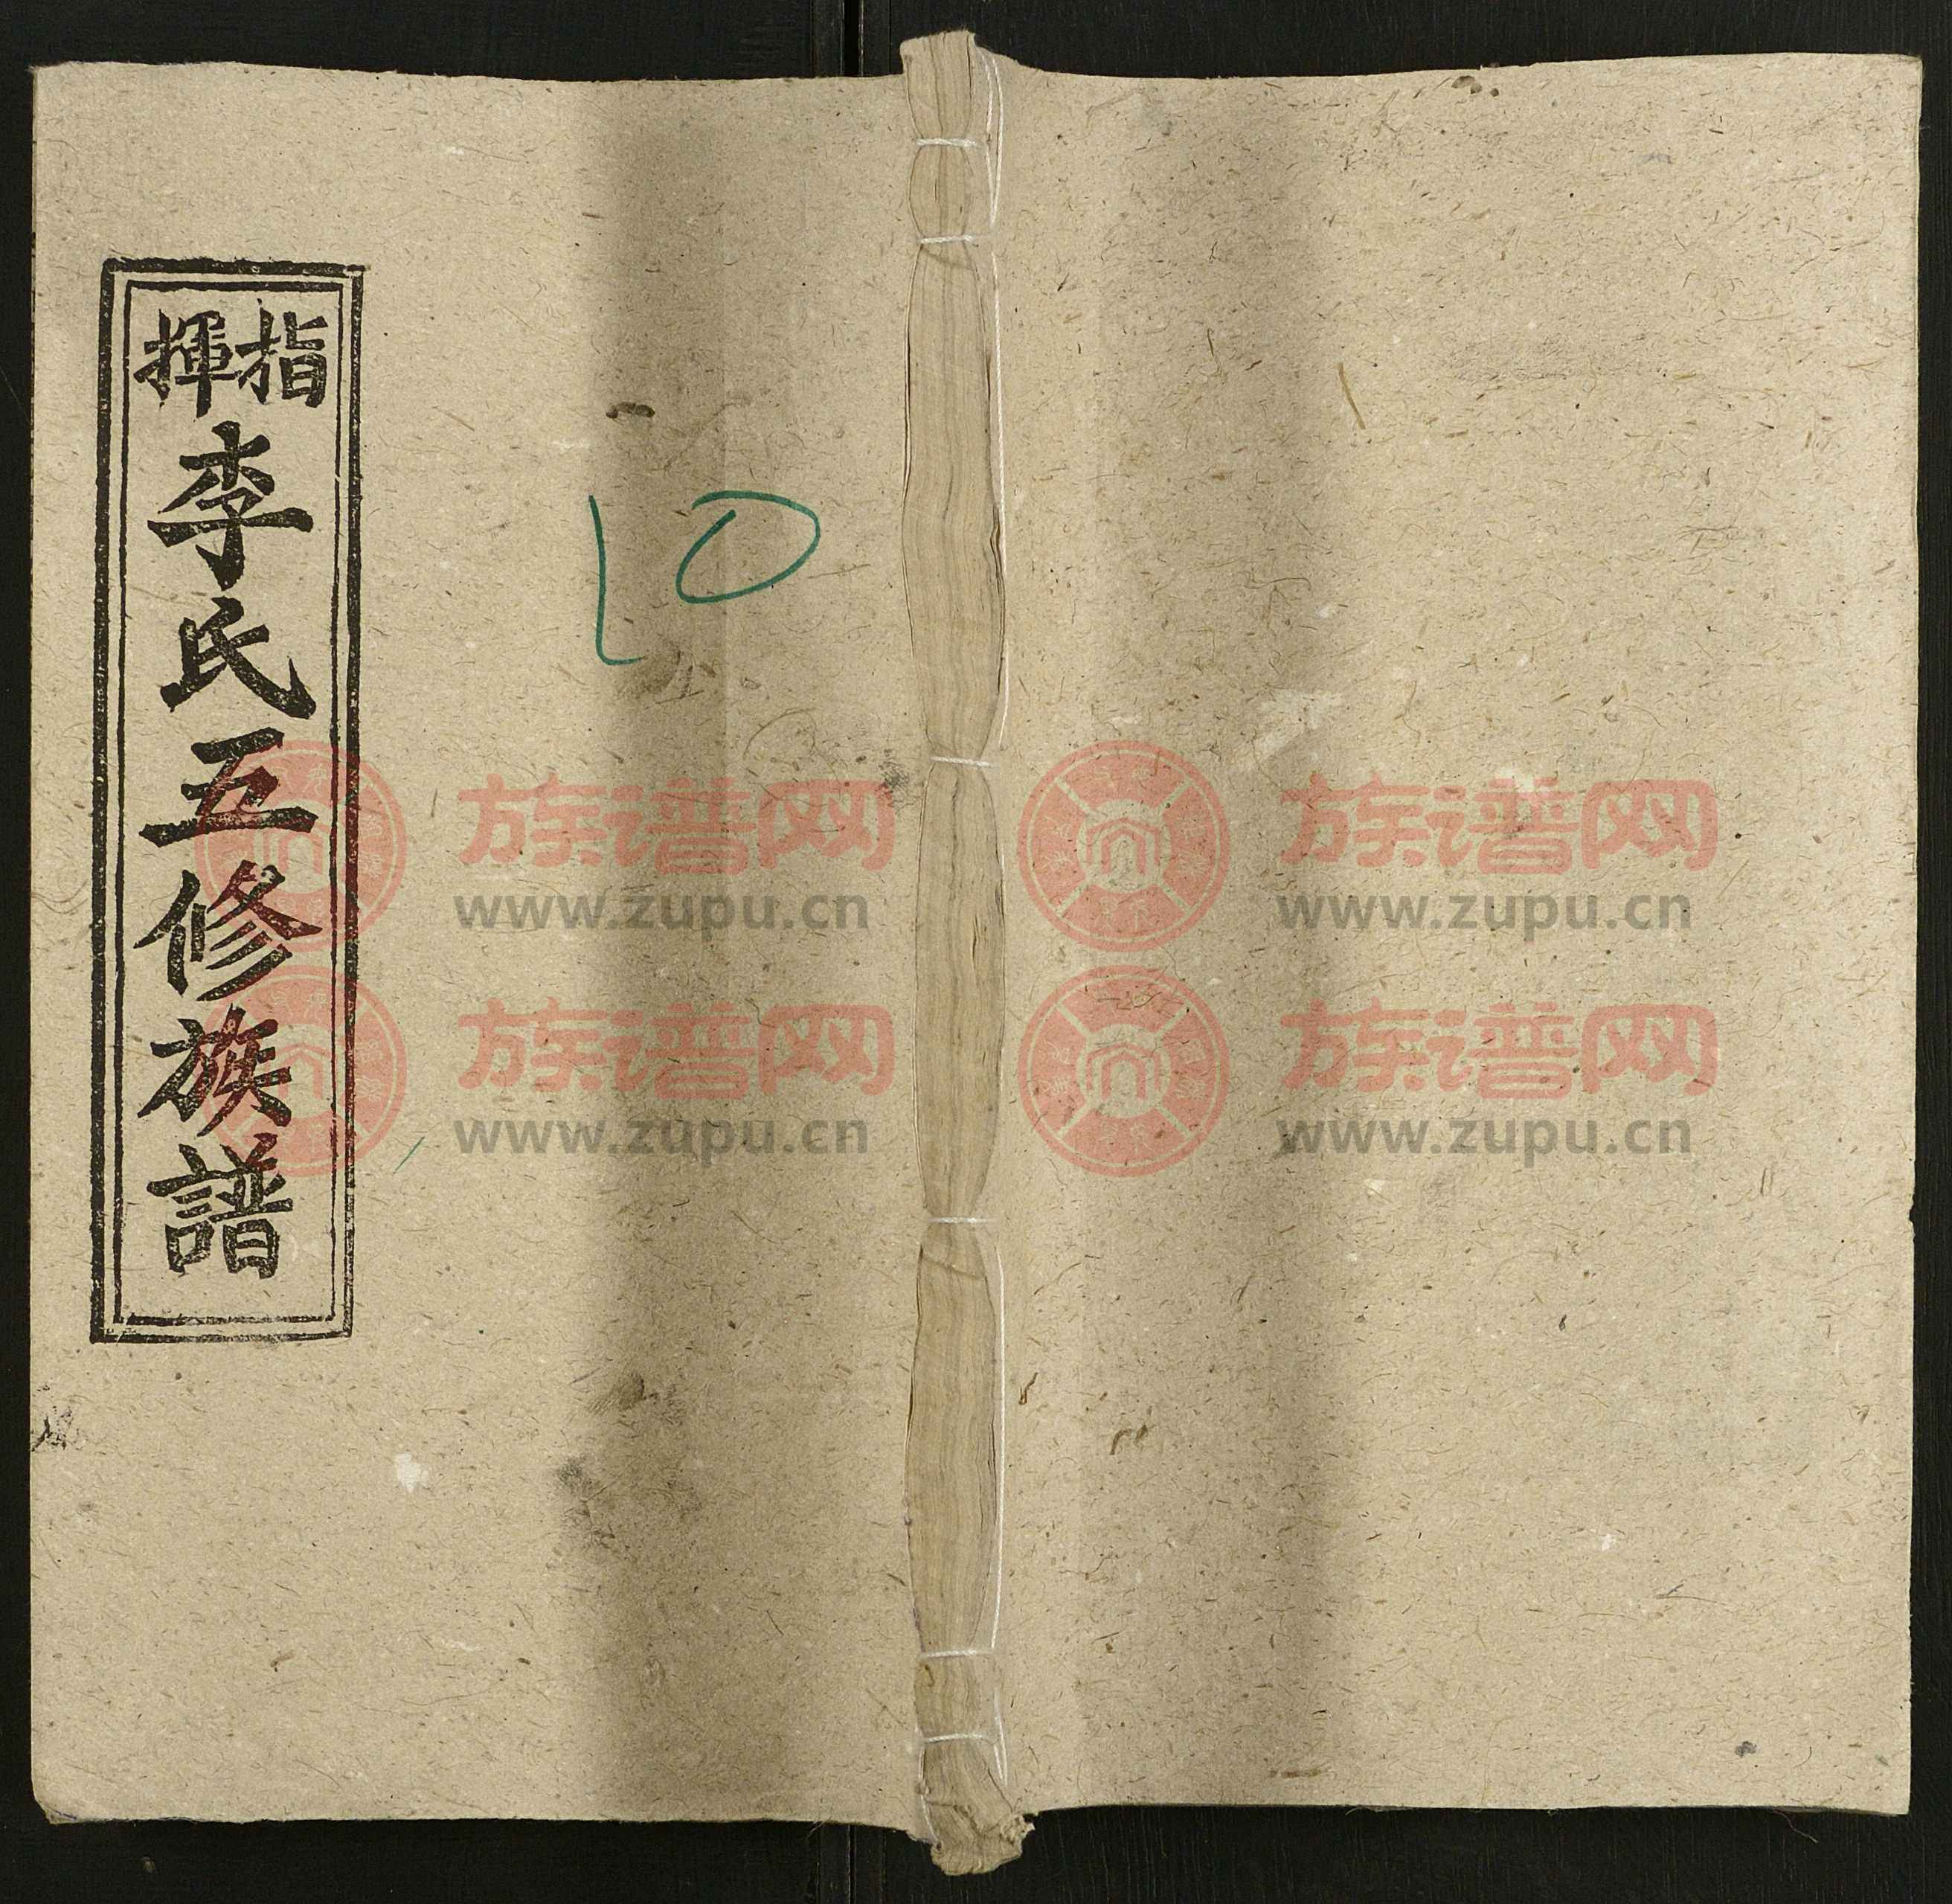 指揮
李氏五修族譜
10
族谱网
www.zupu.cn
族谱网
www.zupu.cn
族谱网
www.zupu.cn
族谱网
www.zupu.cn